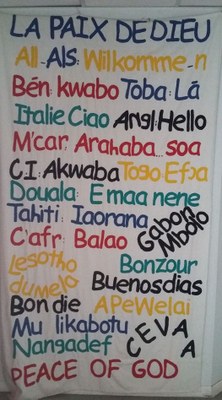 LA PAIX DE DIEU
All-Als: Wilkomme-n
Bén: kwabo Toba: Là
Italie Ciao Angl: Hello
M'car: Arahaba... soa
C.I: Akwaba Togo Efɔa
Douala: E maa nene
Tahiti: Iaorana
Gabon Mbolo
C'afr: Balao
Lesotho dumela
Bonzour
Buenos dias
Bon die APeWelai
Mu likabotu
CEVAA
Nangadef
PEACE OF GOD